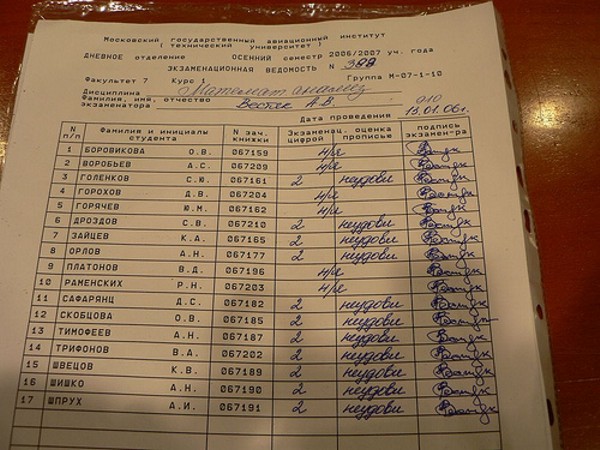 Московский государственный авиационный институт
( технический университет )
ДНЕВНОЕ отделение ОСЕННИЙ семестр 2006/2007 уч. года
ЭКЗАМЕНАЦИОННАЯ ВЕДОМОСТЬ N 399
Факультет 7 Курс 1 Группа М-07-1-10
Дисциплина Математ анализ
Фамилия, имя, отчество
экзаменатора А.В. 910
Дата проведения 13.01.06г.
N п/п Фамилия и инициалы студента N зач. книжки Экзаменац. оценка цифрой прописью подпись экзамен-ра
1 БОРОВИКОВА О.В. 067159 н/я
2 ВОРОБЬЕВ А.С. 067209 н/я
3 ГОЛЕНКОВ С.Ю. 067161 2 неудовл
4 ГОРОХОВ Д.В. 067204 н/я
5 ГОРЯЧЕВ Ю.М. 067162 н/я
6 ДРОЗДОВ С.В. 067210 2 неудовл
7 ЗАЙЦЕВ К.А. 067165 2 неудовл
8 ОРЛОВ А.Н. 067177 2 неудовл
9 ПЛАТОНОВ В.Д. 067196 н/я
10 РАМЕНСКИХ Р.Н. 067203 н/я
11 САФАРЯНЦ Д.С. 067182 2 неудовл
12 СКОБЦОВА О.В. 067185 2 неудовл
13 ТИМОФЕЕВ А.Н. 067187 2 неудовл
14 ТРИФОНОВ В.А. 067202 2 неудовл
15 ШВЕЦОВ К.В. 067189 2 неудовл
16 ШИШКО А.Н. 067190 2 неудовл
17 ШПРУХ А.И. 067191 2 неудовл